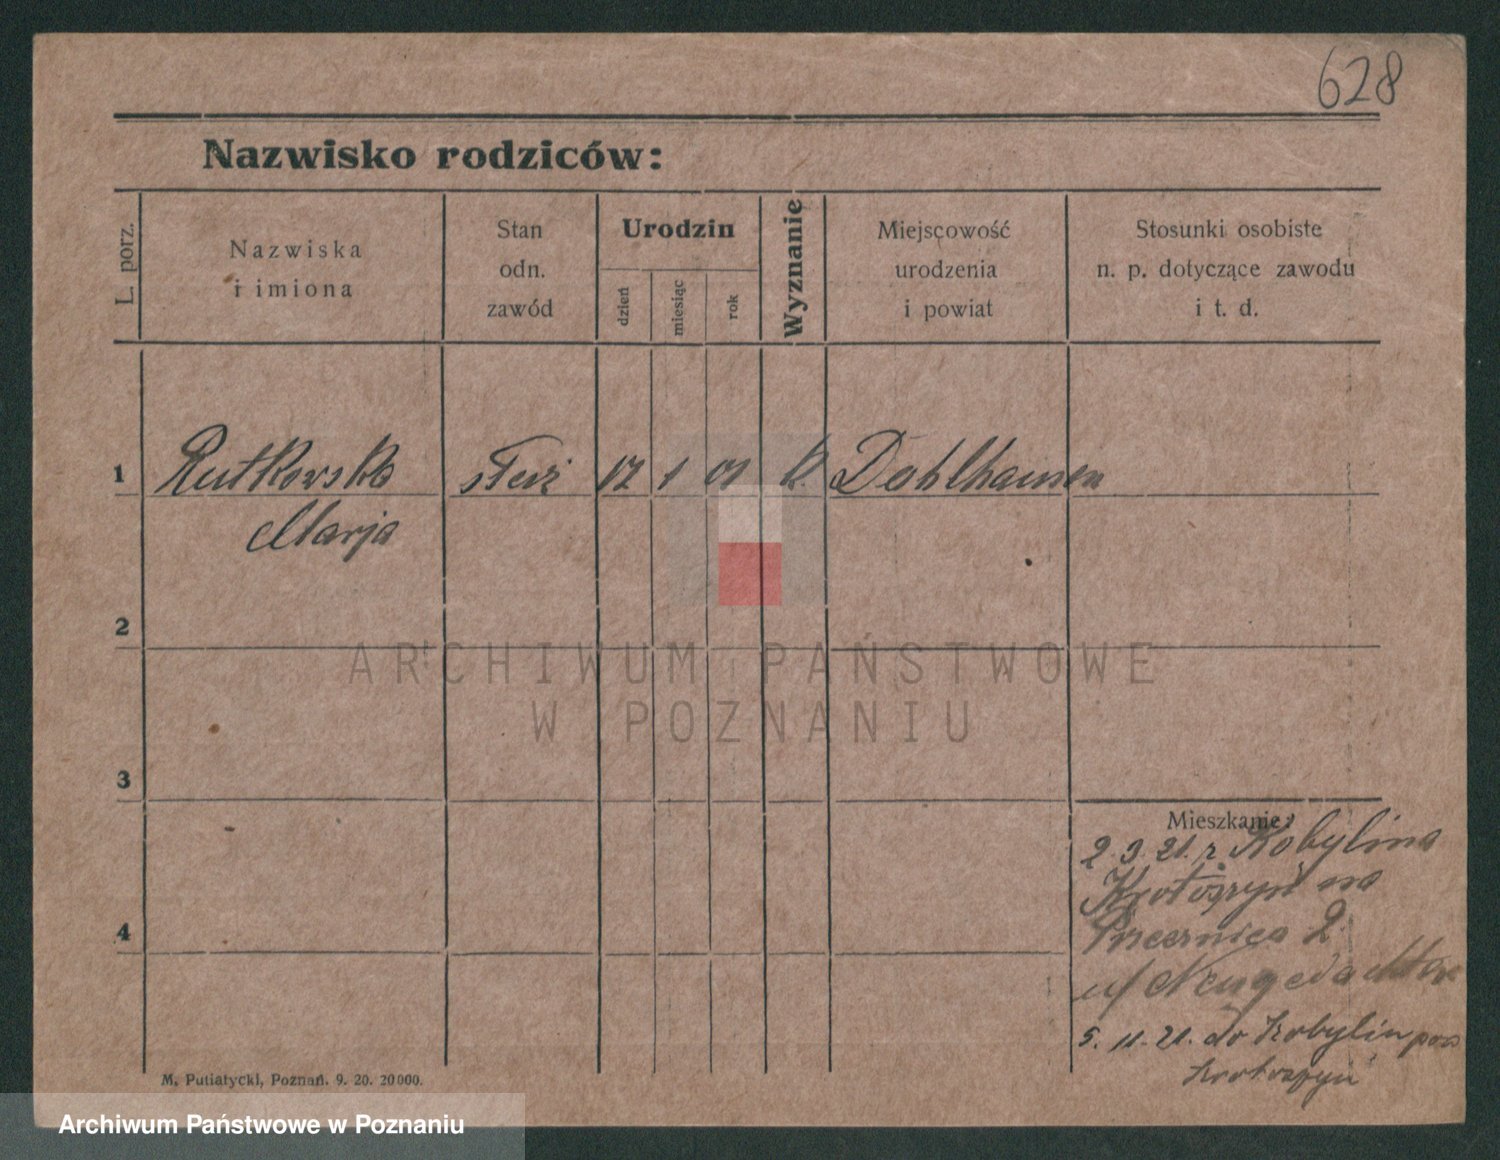 628
Nazwisko rodziców:
L. porz.
Nazwiska
i imiona
Stan
odn.
zawód
Urodzin
dzień
miesiąc
rok
Wyznanie
Miejscowość
urodzenia
i powiat
Stosunki osobiste
n. p. dotyczące zawodu
i t. d.
1 Rutkowska służ 17 1 01 k Dahlhausen
Marja
2
3
4
Mieszkanie:
2.3.21. z Kobylina
Krotoszyń na
2
u/
5. 11. 21. do Kobylin pow
Krotoszyn
M. Putiatycki, Poznań. 9. 20. 20000.
ARCHIWUM PAŃSTWOWE
W POZNANIU
Archiwum Państwowe w Poznaniu